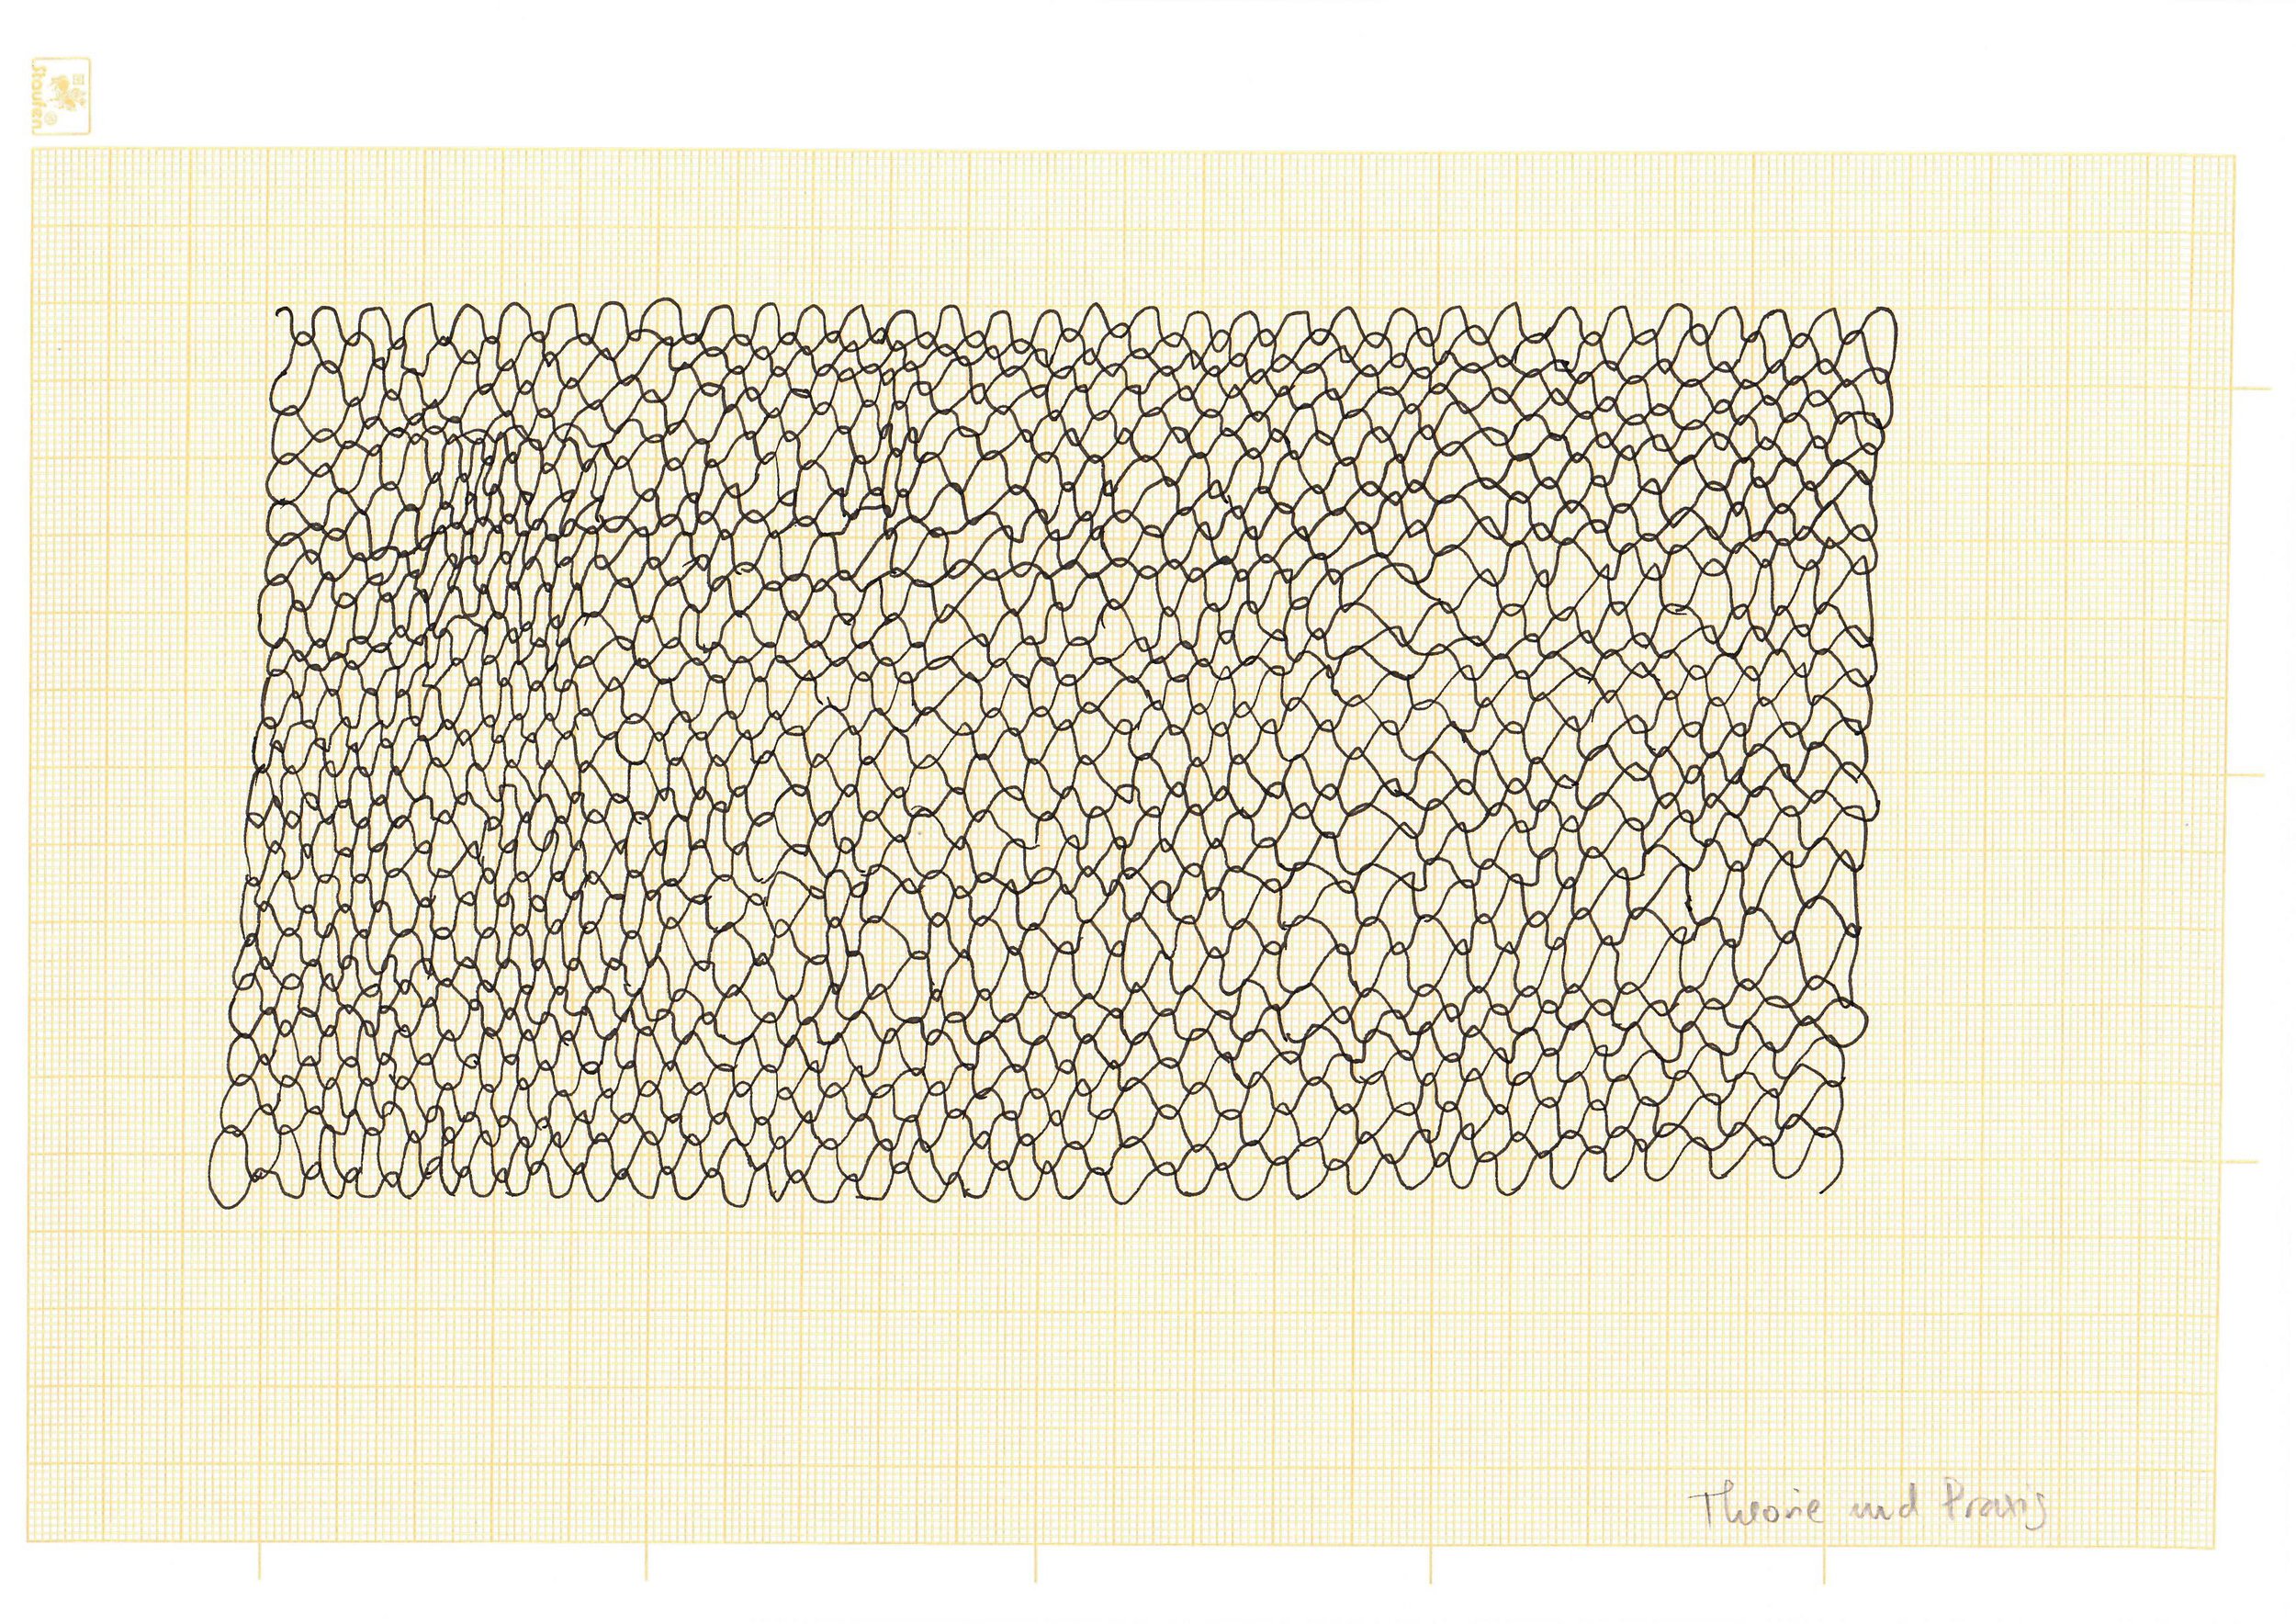 Staufen®
Theorie und Praxis